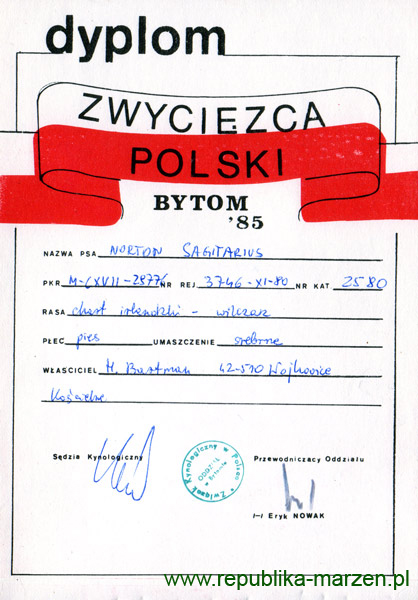 dyplom
ZWYCIĘZCA
POLSKI
BYTOM
'85
NAZWA PSA NORTON SAGITARIUS
PKR M-CXVII-2877/ NR REJ. 3746-XI-80 NR KAT 2580
RASA chart irlandzki - wilczarz
PŁEĆ pies UMASZCZENIE srebrne
WŁAŚCICIEL M. Bartman 42-510 Wojkowice
Kościelne
Sędzia Kynologiczny
Przewodniczący Oddziału
Związek Kynologiczny w Polsce
ODDZIAŁ
w Bytomiu
I-I Eryk NOWAK
www.republika-marzen.pl